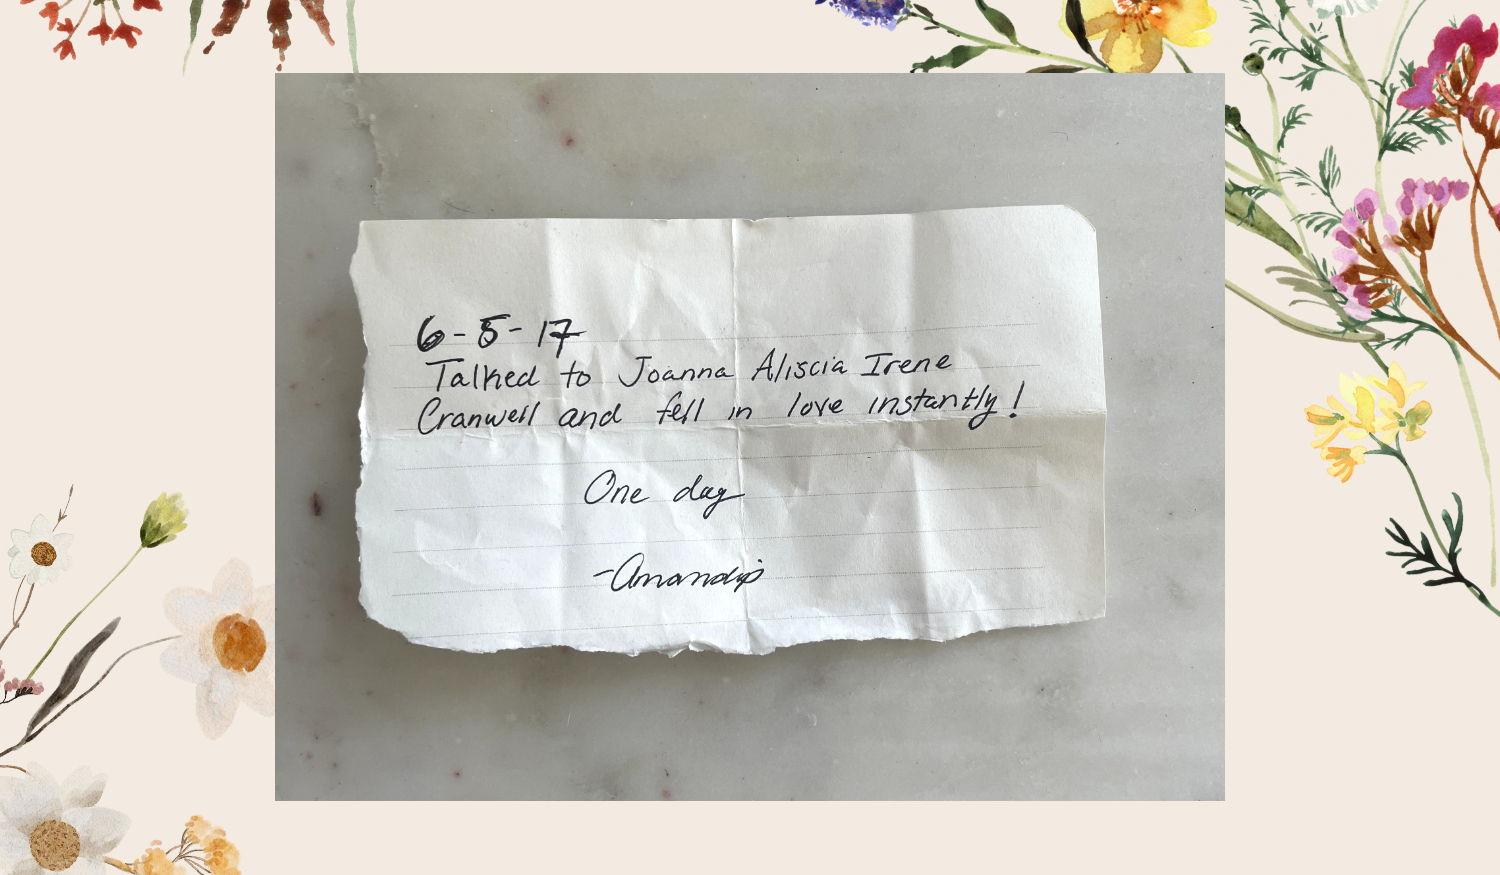 6-5-17
Talked to Joanna Aliscia Irene
Cranwell and fell in love instantly!
One day